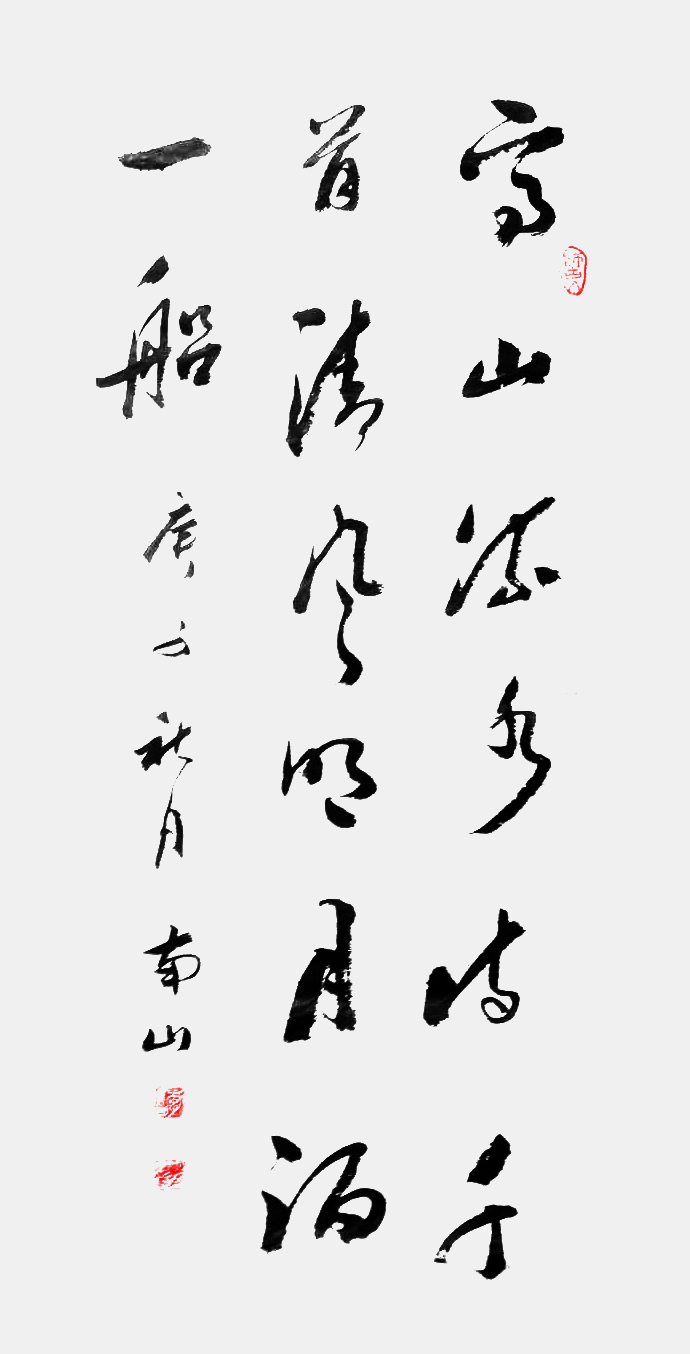 高山流水诗千
首清风明月酒
一船 庚子秋月 南山